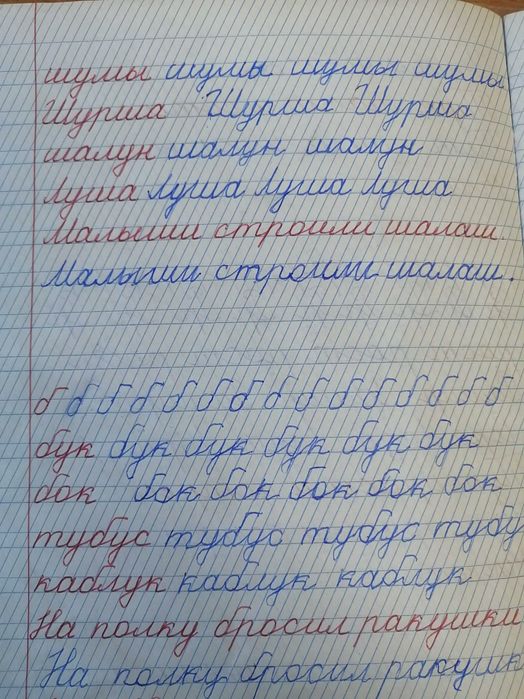 шумы шумы шумы шумы
Шурша Шурша Шурша
шалун шалун шалун
Луша Луша Луша Луша
Малыши строили шалаш.
Малыши строили шалаш.
б б б б б б б б б б б б б б б
бук бук бук бук бук бук
бок бок бок бок бок бок
тубус тубус тубус тубу
каблук каблук каблук
На полку бросил ракушки
На полку бросил ракушк